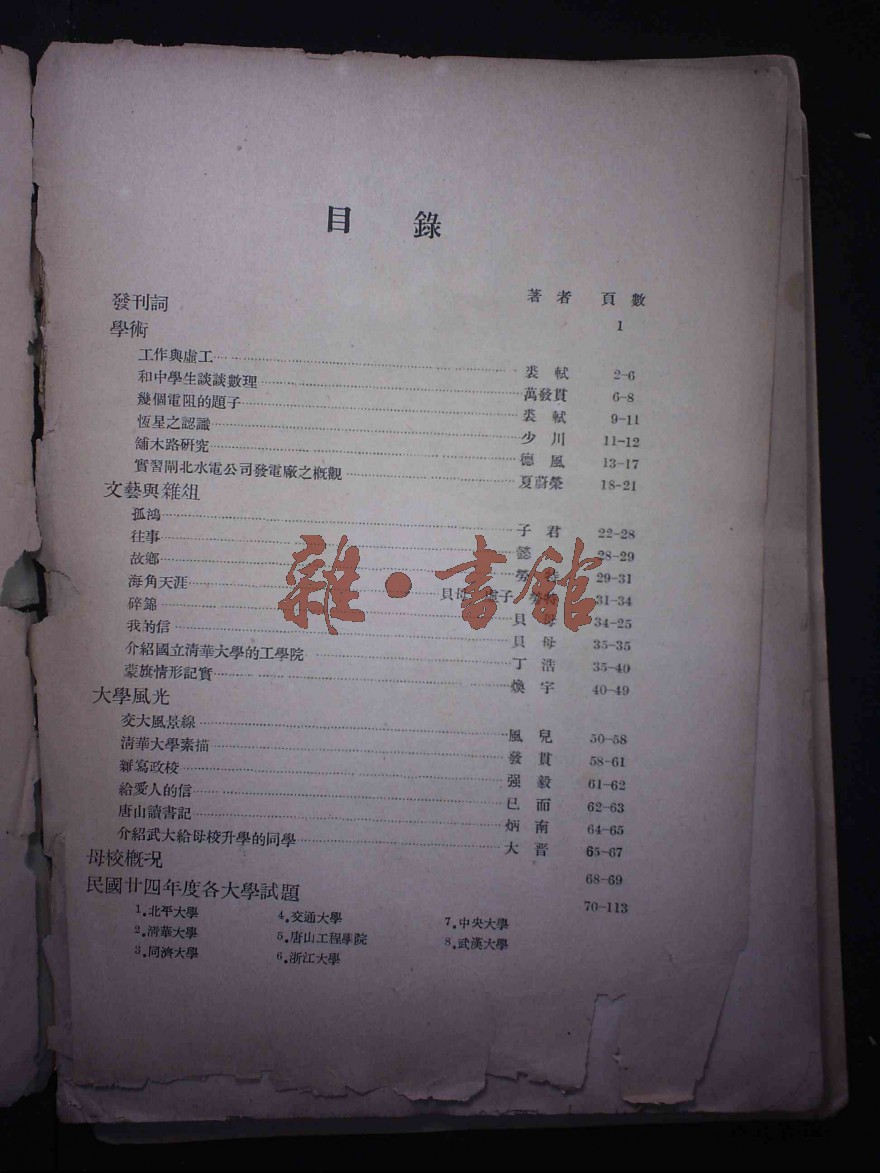 目 錄
著 者 頁 數
發刊詞 1
學術
工作與虛工 裘 軾 2-6
和中學生談談數理 萬發貫 6-8
幾個電阻的題子 裘 軾 9-11
恆星之認識 少 川 11-12
舖木路硏究 德 風 13-17
實習閘北水電公司發電廠之槪觀 夏蔚榮 18-21
文藝與雜俎
孤鴻 子 君 22-28
往事 懿 28-29
故鄉 勞 29-31
海角天涯 貝母 虛子 勞特 31-34
碎錦 貝 母 34-25
我的信 貝 母 35-35
介紹國立淸華大學的工學院 丁 浩 35-40
蒙旗情形記實 煥 宇 40-49
大學風光
交大風景線 風 兒 50-58
淸華大學素描 發 貫 58-61
雜寫政校 强 毅 61-62
給愛人的信 已 而 62-63
唐山讀書記 炳 南 64-65
介紹武大給母校升學的同學 大 晋 65-67
母校槪况 68-69
民國廿四年度各大學試題 70-113
1.北平大學 4.交通大學 7.中央大學
2.淸華大學 5.唐山工程學院 8.武漢大學
3.同濟大學 6.浙江大學
雜·書館